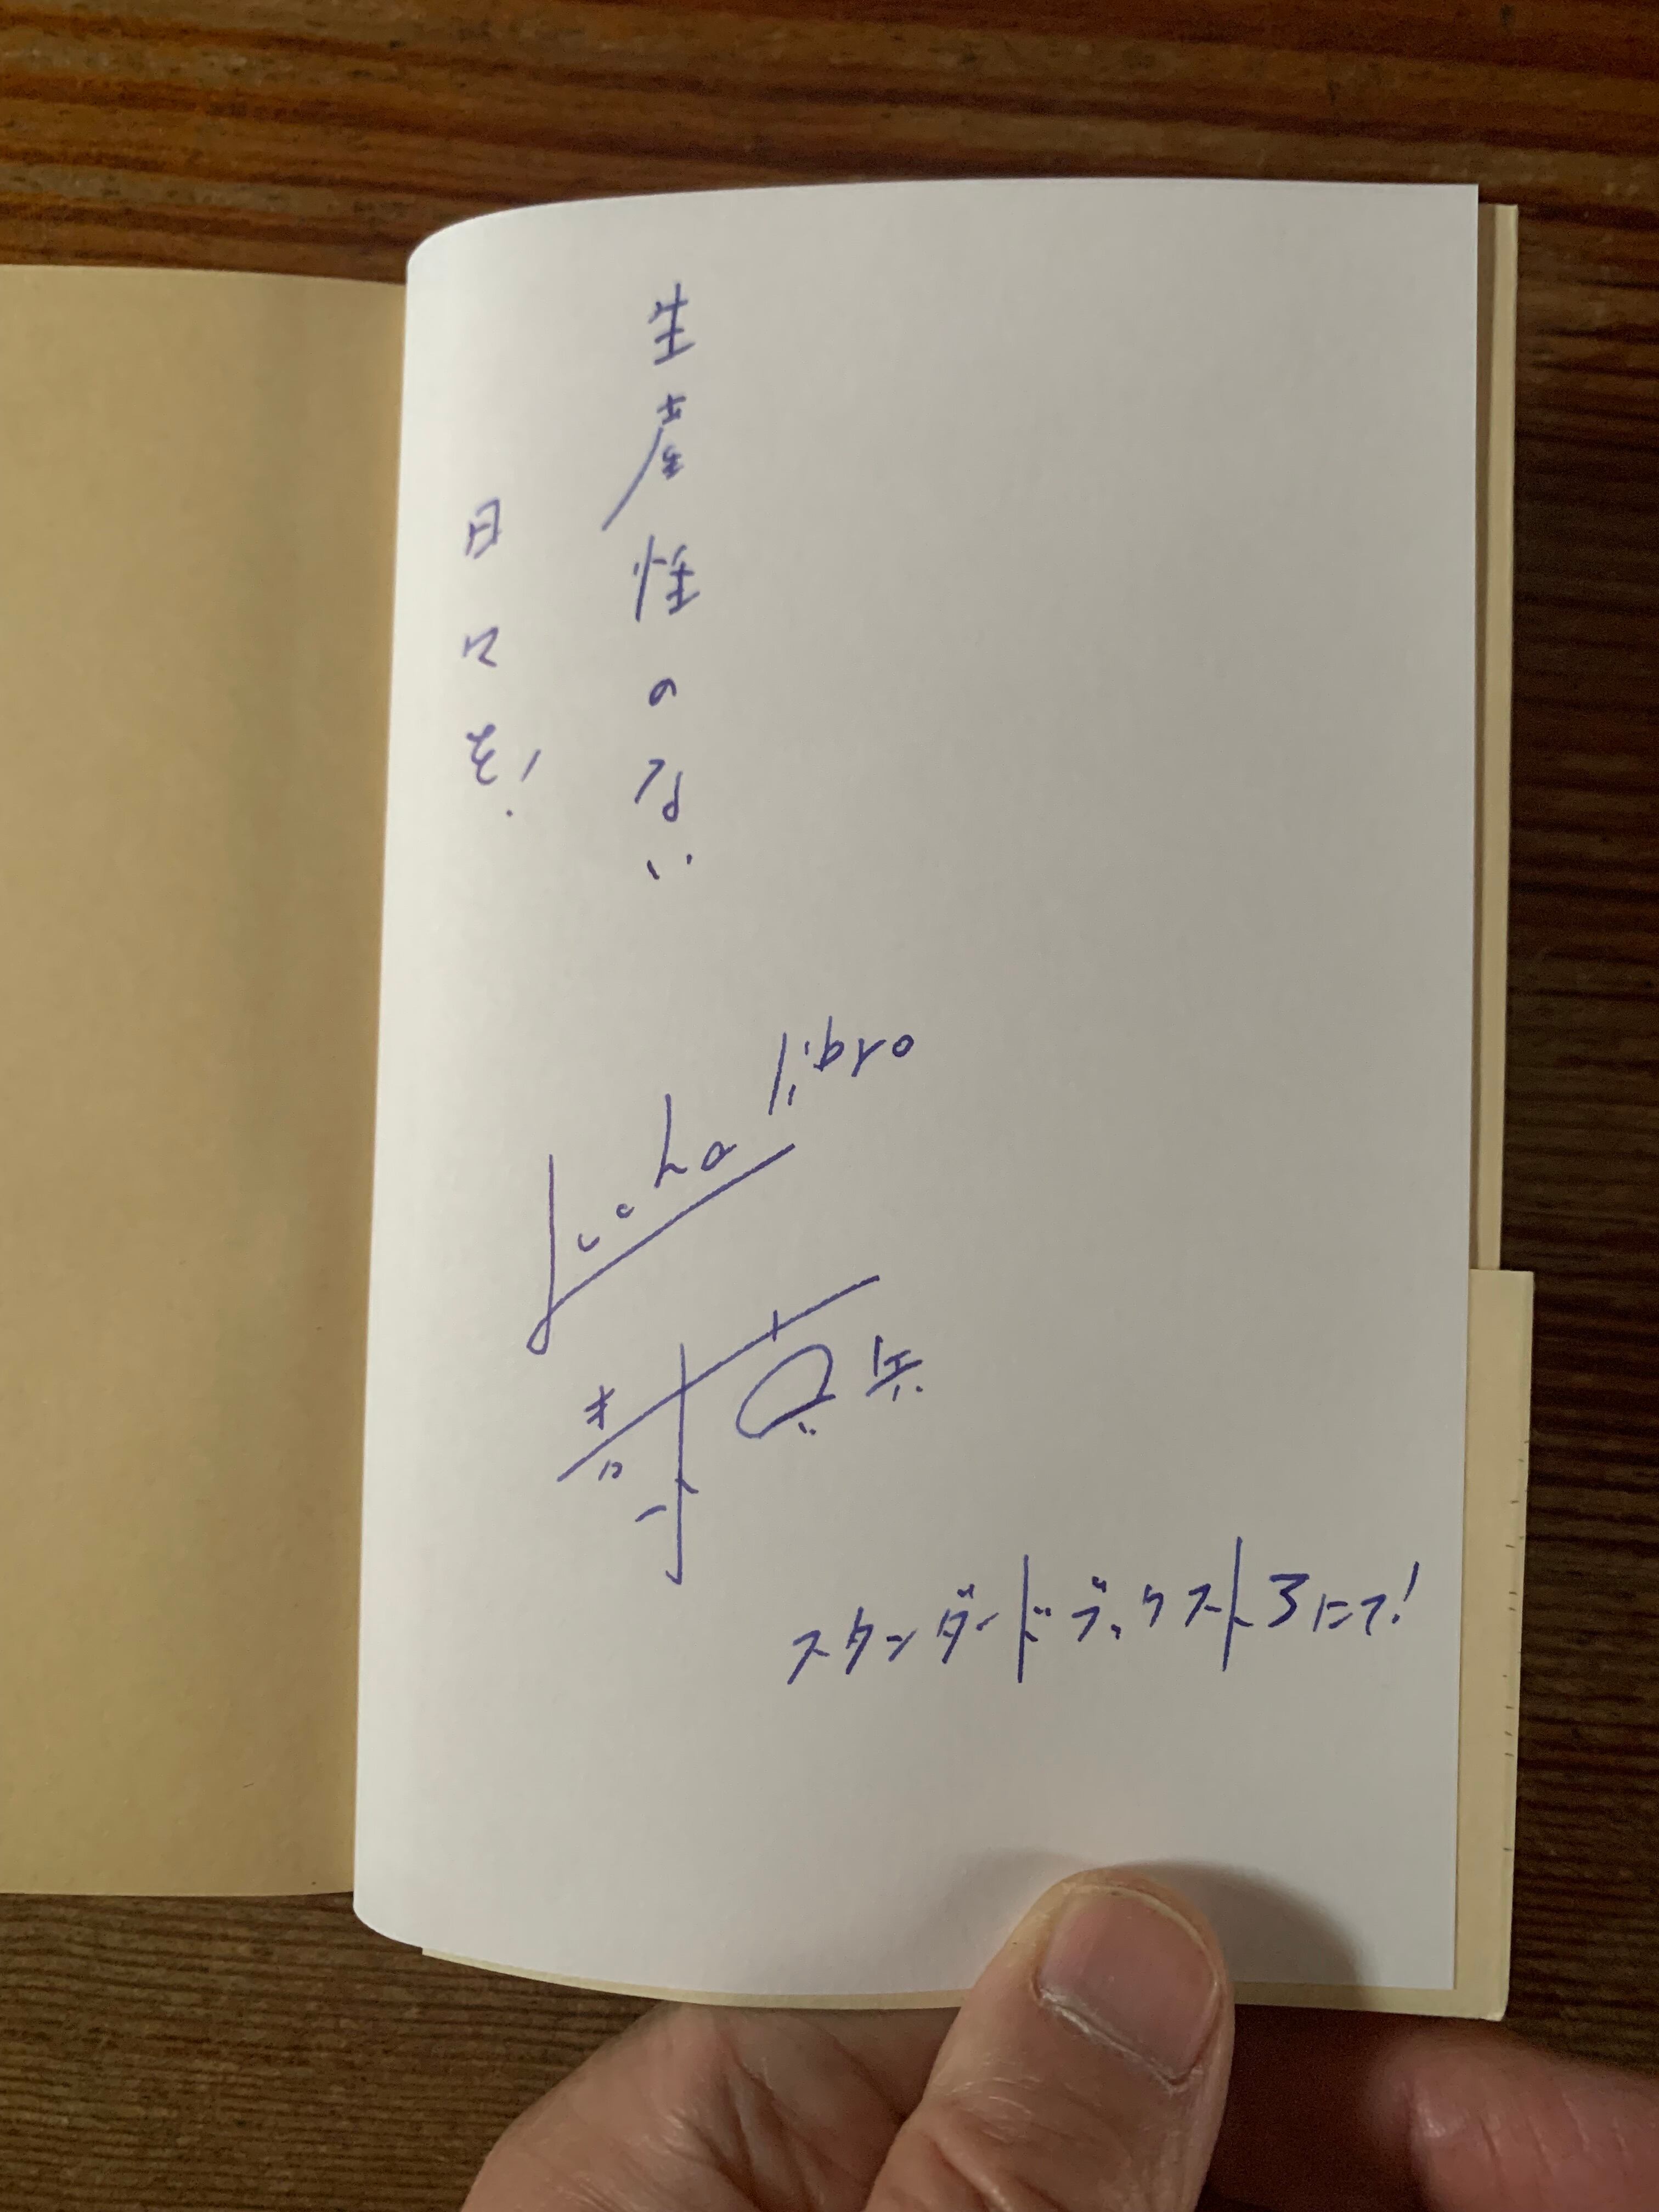 生産性のない
日々を!
Lucha libro
青木真兵
スタンダードブックスト3にて!